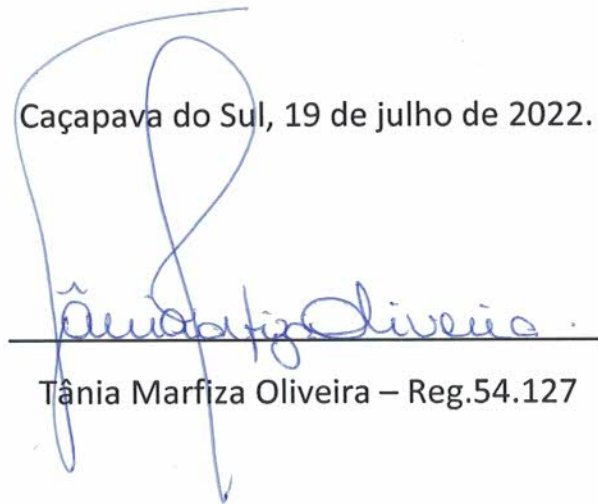 Caçapava do Sul, 19 de julho de 2022.
Tânia Marfiza Oliveira
Tânia Marfiza Oliveira – Reg.54.127